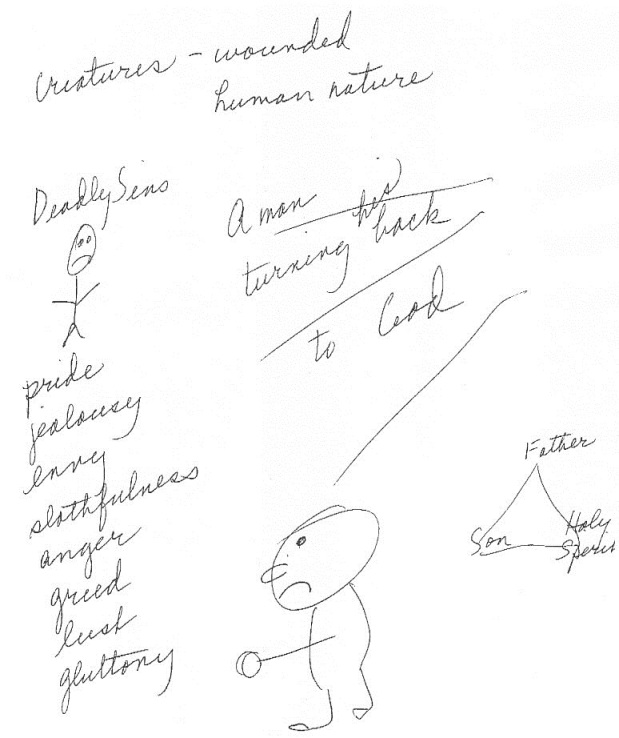 Creatures - wounded
human nature
Deadly Sins
pride
jealousy
envy
slothfulness
anger
greed
lust
gluttony
A man his
turning back
to God
Father
Son
Holy
Spirit